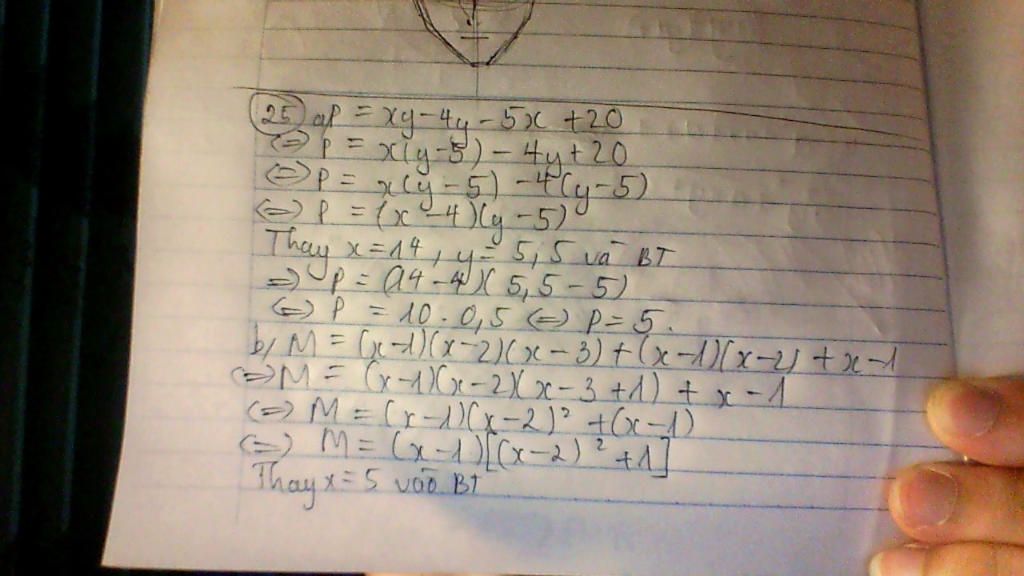 25 a, P = xy - 4y - 5x + 20
<=> P = x(y-5) - 4y + 20
<=> P = x(y-5) - 4(y-5)
<=> P = (x-4)(y-5)
Thay x = 14, y = 5,5 vào BT
=> P = (14-4)(5,5-5)
<=> P = 10 . 0,5 <=> P = 5.
b, M = (x-1)(x-2)(x-3) + (x-1)(x-2) + x-1
<=> M = (x-1)(x-2)(x-3+1) + x-1
<=> M = (x-1)(x-2)² + (x-1)
<=> M = (x-1)[(x-2)² + 1]
Thay x = 5 vào BT